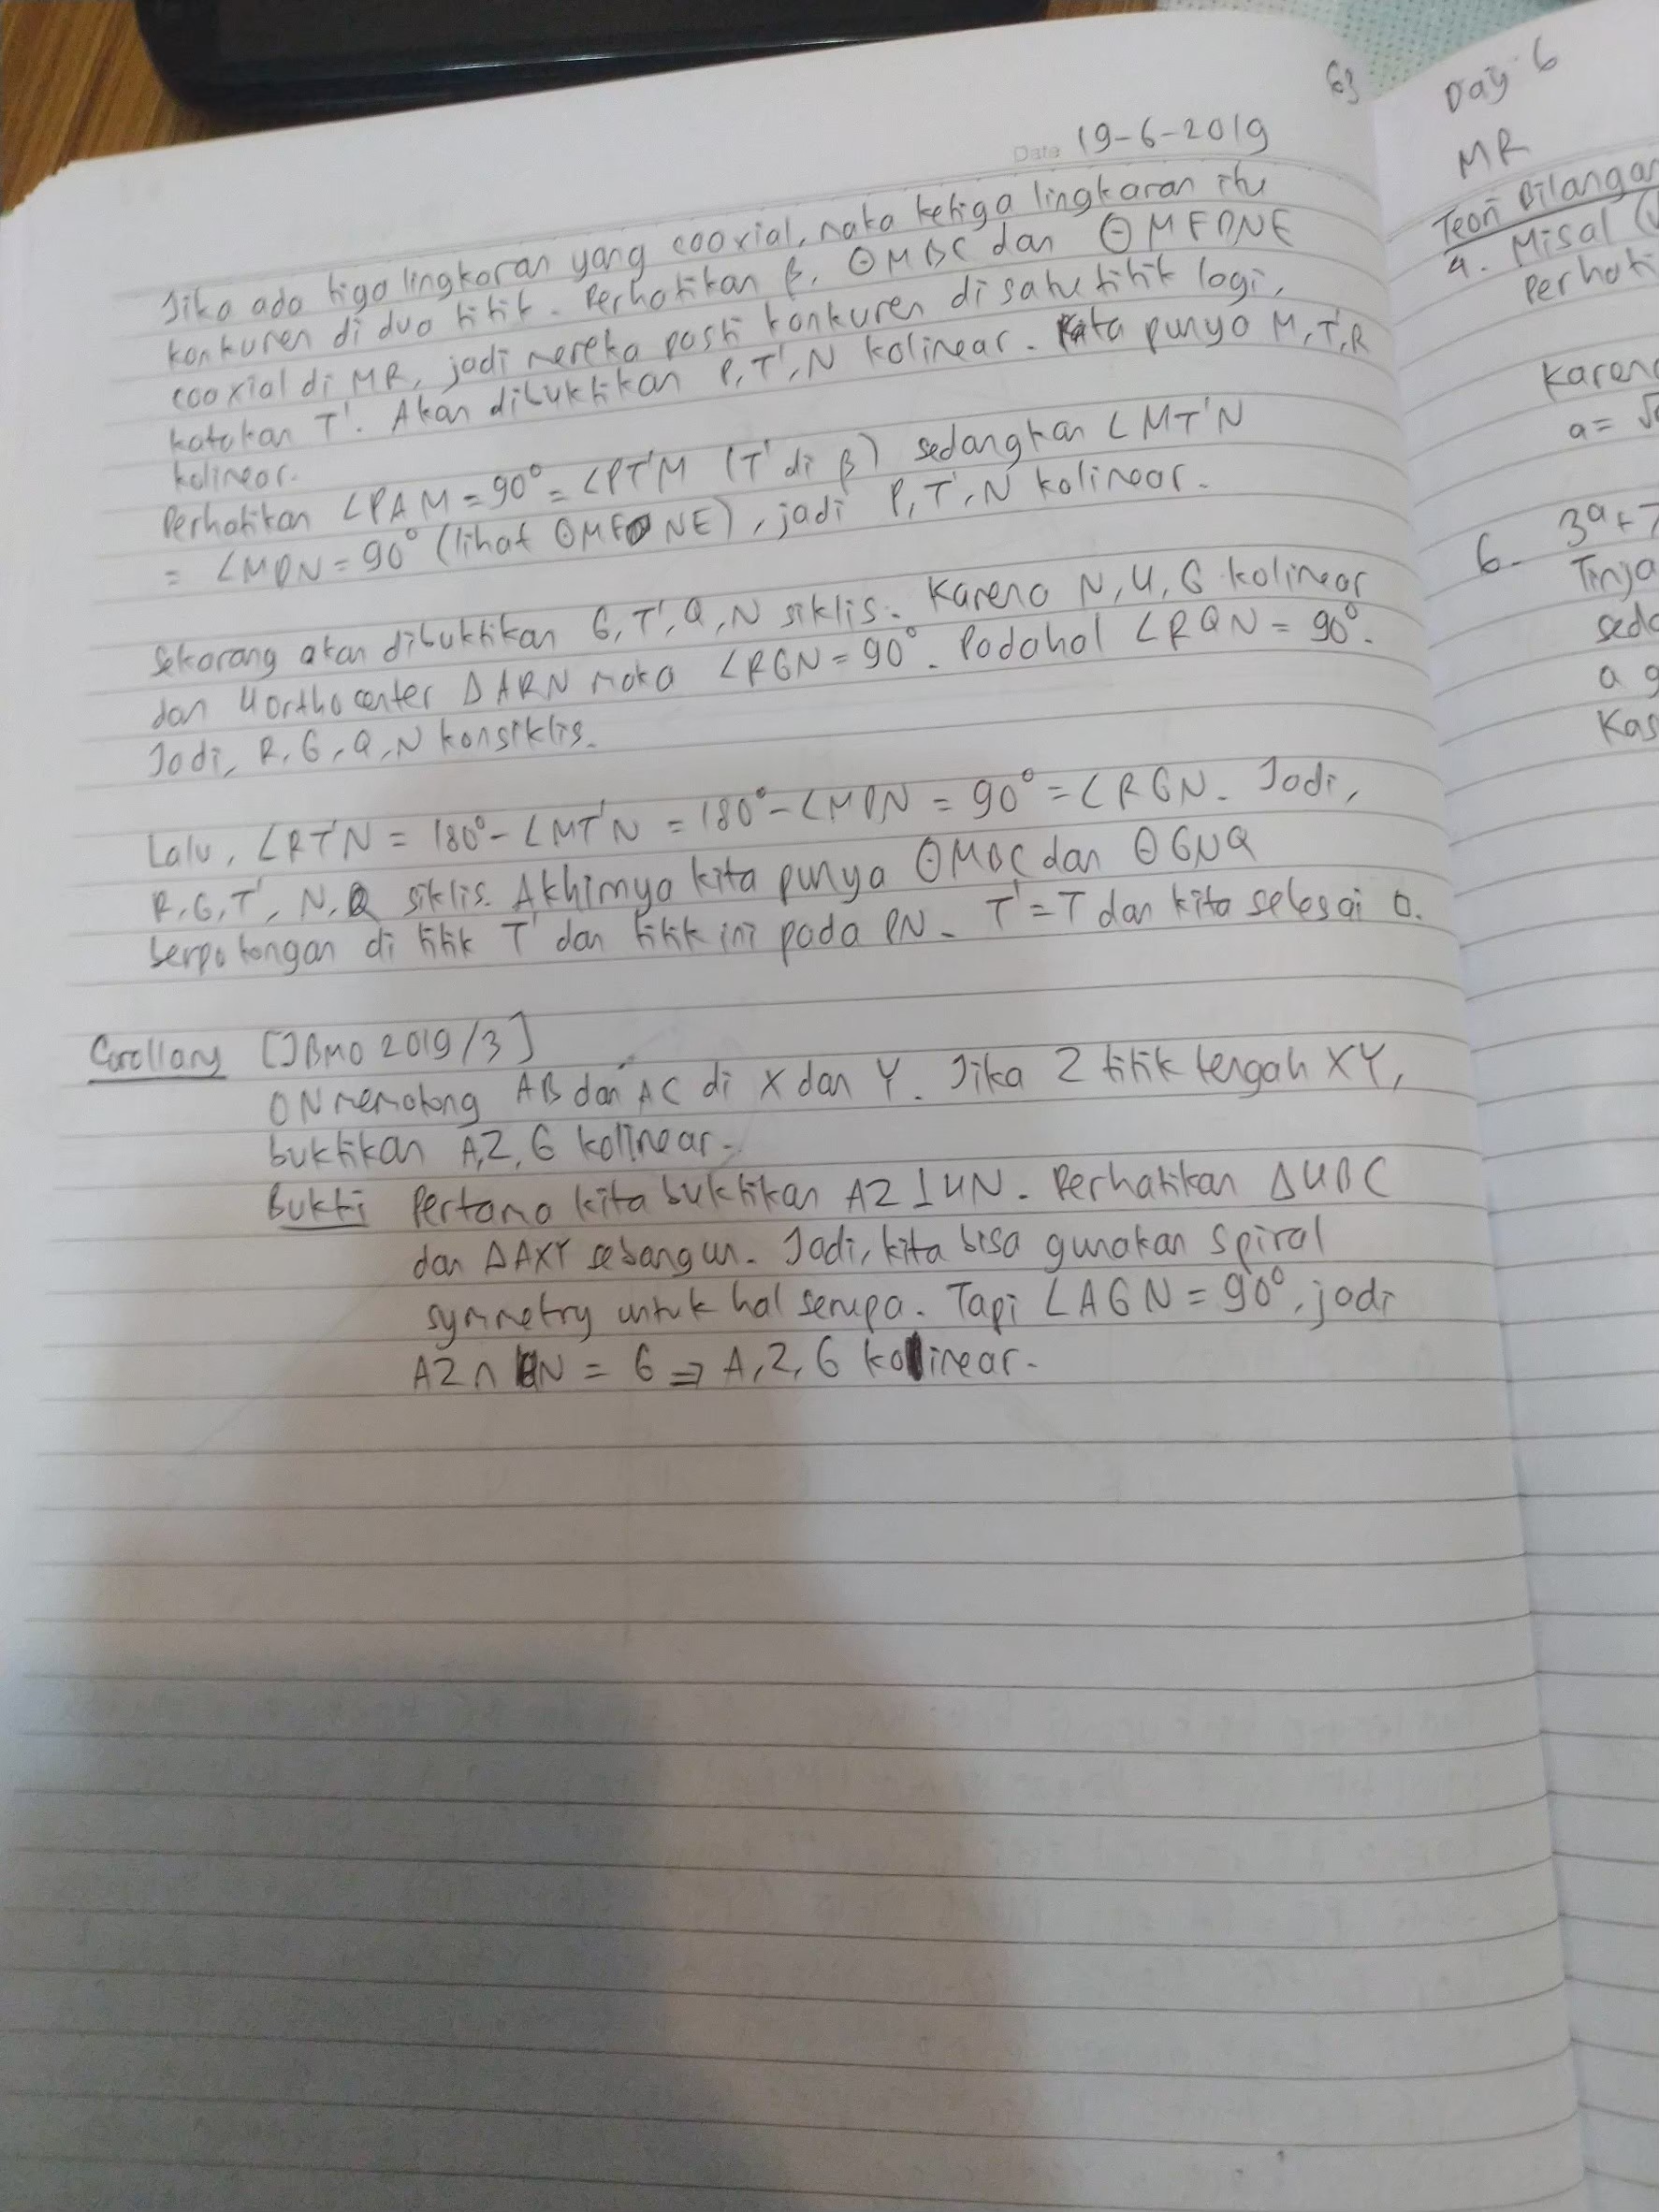 63
Date 19-6-2019
Jika ada tiga lingkaran yang coaxial, maka ketiga lingkaran itu
konkuren di dua titik. Perhatikan β, ⊙MBC dan ⊙MFDNE
coaxial di MR, jadi mereka pasti konkuren di satu titik lagi,
katakan T'. Akan dibuktikan P, T', N kolinear. Kita punya M, T', R
kolinear.
Perhatikan ∠PAM = 90° = ∠PT'M (T' di β) sedangkan ∠MT'N
= ∠MDN = 90° (lihat ⊙MFDNE), jadi P, T', N kolinear.
Sekarang akan dibuktikan G, T', Q, N siklis. Karena N, H, G kolinear
dan H orthocenter ΔARN maka ∠RGN = 90°. Padahal ∠RQN = 90°.
Jadi, R, G, Q, N konsiklis.
Lalu, ∠RT'N = 180° - ∠MT'N = 180° - ∠MDN = 90° = ∠RGN. Jadi,
R, G, T', N, Q siklis. Akhirnya kita punya ⊙MBC dan ⊙GNQ
berpotongan di titik T' dan titik ini pada PN. T' = T dan kita selesai □.
Corollary [JBMO 2019/3]
ON memotong AB dan AC di X dan Y. Jika Z titik tengah XY,
buktikan A, Z, G kolinear.
Bukti Pertama kita buktikan AZ ⊥ HN. Perhatikan ΔHBC
dan ΔAXY sebangun. Jadi, kita bisa gunakan spiral
symmetry untuk hal serupa. Tapi ∠AGN = 90°, jadi
AZ ∩ HN = G ⇒ A, Z, G kolinear.
Day 6
MR
Teori Bilangan
4. Misal
a =
6. 3ᵃ + 7
a